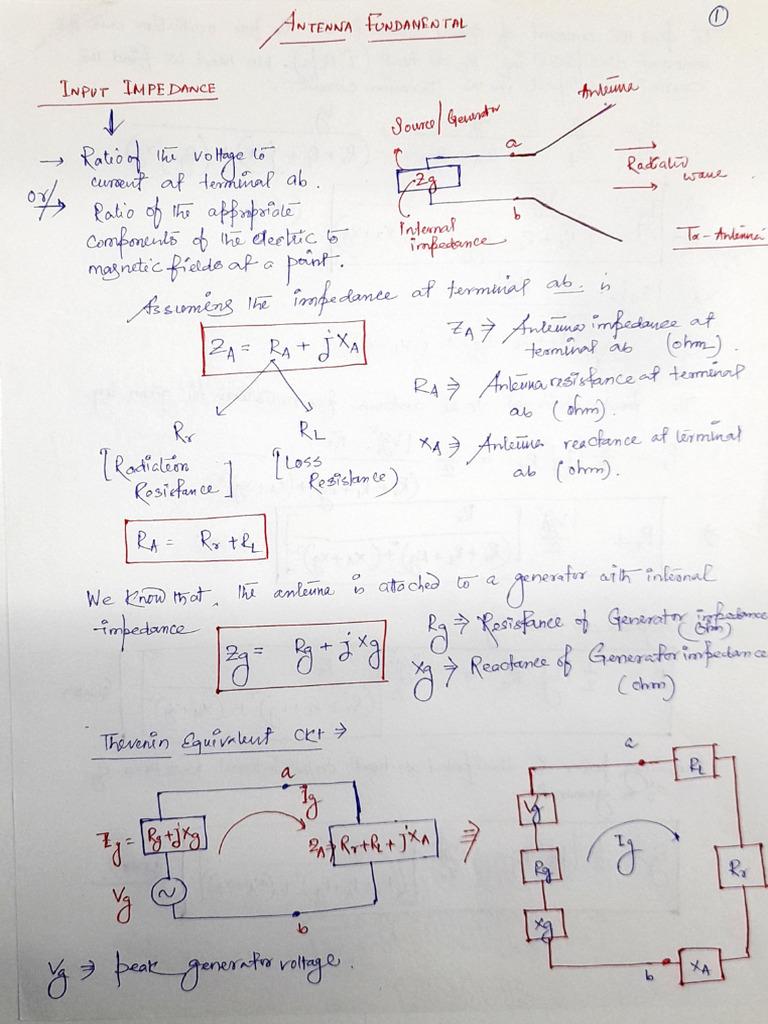 ①
ANTENNA FUNDAMENTAL
INPUT IMPEDANCE
→ Ratio of the voltage to
current at terminal ab.
or/
→ Ratio of the appropriate
components of the electric to
magnetic fields at a point.
Source/Generator
Antenna
a
Zg
b
Internal
impedance
Radiated
wave
Tx-Antenna
Assuming the impedance at terminal ab. is
ZA = RA + jXA
ZA ⇒ Antenna impedance at
terminal ab (ohm).
RA ⇒ Antenna resistance at terminal
ab (ohm).
XA ⇒ Antenna reactance at terminal
ab (ohm).
Rr
[Radiation
Resistance]
RL
[Loss
Resistance)
RA = Rr + RL
We know that, the antenna is attached to a generator with internal
impedance
Zg = Rg + jXg
Rg ⇒ Resistance of Generator impedance
(ohm)
Xg ⇒ Reactance of Generator impedance
(ohm)
Thevenin Equivalent Ckt ⇒
a
Ig
Zg = Rg+jXg
ZA = Rr+RL+jXA
Vg
b
⇒
a
RL
Vg
Ig
Rg
Rr
Xg
b
XA
Vg ⇒ peak generator voltage.